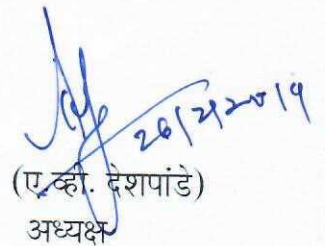 26/2/2019
(ए.व्ही. देशपांडे)
अध्यक्ष